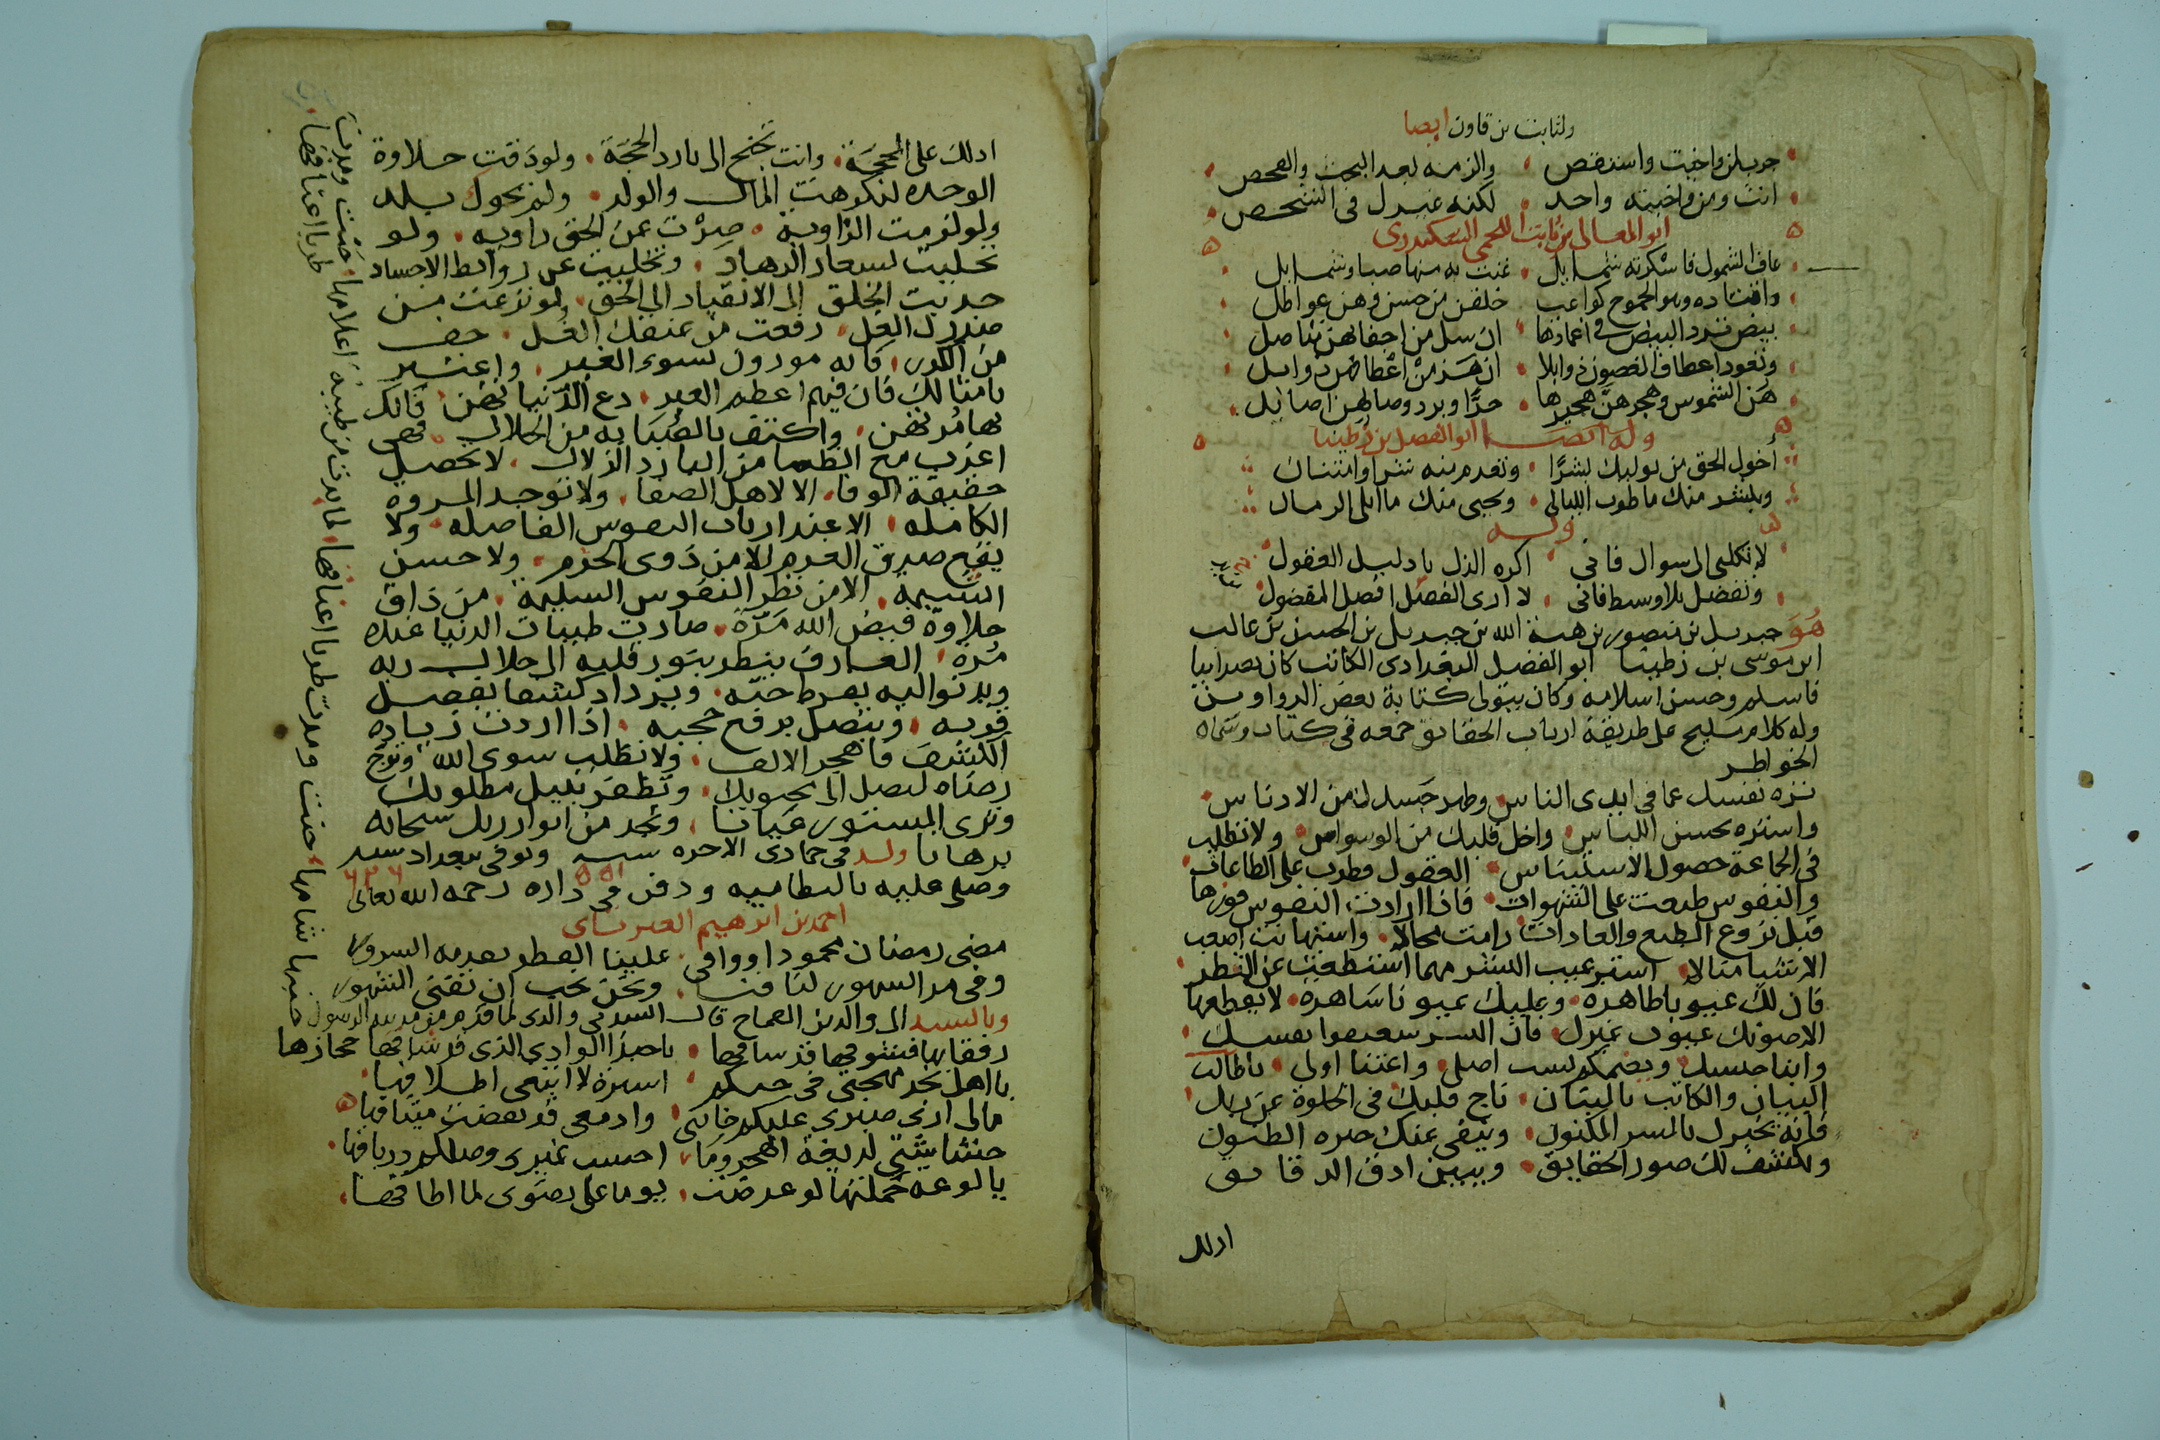 ولثابت بن تاون ايضا
جرب لمن واخيت واستقص والزمه بعد البحث والفحص
انت ومن واخيته واحد لكنه غيرك في الشخص
ابو المعالي بن ثابت اللخمي السكندري
عاف الشمول فاسكرته شمايل غنت به منها صبا وشمايل
واقتاده وهو الجموح كواعب خلقن من حسن وهن عواطل
بيض ترد البيض في اغمادها ان سل من اجفانهن مناصل
وتعود اعطاف الغصون ذوابلا ان هز من اعطافهن ذوابل
هن الشموس وهجرهن هجيرها حرا وبرد وصالهن اصائل
وله ايضا ابو الفضل بن زطينا
أخوك الحق من يوليك بشرا وتعدم منه شرا وامتنان
وينشر منك ما طوت الليالي ويحيى منك ما ابلى الزمان
وله
لا تكلني الى سوال فاني اكره الذل يا دليل العقول
وتفضل بلا وسط فاني لا ارى الفضل افضل المفضول
هو جبريل بن منصور بن هبة الله بن جبريل بن الحسن بن غالب
ابن موسى بن زطينا ابو الفضل البغدادي الكاتب كان نصرانيا
فاسلم وحسن اسلامه وكان يتولى كتابة بعض الدواوين
وله كلام مليح على طريقة ارباب الحقائق جمعه في كتاب وسماه
الخواطر
نزه نفسك عما في ايدي الناس وطهر جسدك من الادناس
واستره بحسن اللباس واخل قلبك من الوسواس ولا تطلب
في الجماعة حصول الاستيناس العقول فطرت على الطاعات
والنفوس طبعت على الشهوات فاذا ارادت النفوس فوزها
قبل نزوع الطبع والعادات رامت محالا واستهانت اصعب
الاشيا منالا استر عيب البشر مهما استطعت عن النظر
فان لك عيوبا ظاهرة وعليك عيونا ساهرة لا يعطها
الا صونك عيوب غيرك فان
وابنا جنسك ويضمكم نسب اصلي واعتنا اولى يا طالب
البيان والكاتب بالبنان ناج قلبك في الخلوة عن ربك
فانه يخبرك بالسر المكنون وينفي عنك الظنون
ويكشف لك صور الحقايق ويبين ادق الدقائق
ادلك
ادلك على المحجة وانت تجنح الى بارد الحجة ولو ذقت حلاوة
الوحده لنكرهت المال والولد ولم تحول ببلد
ولو لزمت الزاوية صرت عن الحق راويه ولو
تحليت بشعار الزهاد وتخليت عن روابط الاجساد
جذبت الخلق الى الانقياد الى الحق لو نزعت من
صدرك الغل رفعت من عنقك الغل خف
من الكدر فانه مورد لسوء الغير واعتبر
بامثالك فان فيهم اعظم العبر دع الدنيا فانك
بها مرتهن واكتف بالصبابه من الحلال فهي
اعذب مع الظما من البارد الزلال لا تحصل
حقيقة الوفا الا لاهل الصفا ولا توجد المروة
الكامله الا عند ارباب النفوس الفاضله ولا
يقع صدق العزم الا من ذوي الحزم ولا حسن
الشيمه الا من نظر النفوس السليمة من ذاق
حلاوة فيض الله مرة صارت طيبات الدنيا عنده
مرة العارف ينظر بنور قلبه الى جلال ربه
ويدنو اليه بفرط حبه ويزداد كشفا بفضل
قربه ويتصل برفع حجبه اذا اردت زيادة
الكشف فاهجر الالف ولا تطلب سوى الله وتوخ
رضاه لتصل الى محبوبك وتظفر بنيل مطلوبك
وترى المستور عيانا وتجد من انوار ربك سبحانه
برهانا ولد في جمادى الاخره سنه ٥٥١ وتوفي ببغداد سنه ٦٢٦
وصلي عليه بالنظاميه ودفن في داره رحمه الله تعالى
احمد بن ابرهيم
مضى رمضان محمودا ووافى علينا الفطر يقدمه السرور
وفي مر الشهور لنا فنا ونحن نحب ان تفنى الشهور
وبالسند الى والدي قال انشدني والدي لما قدم من مدينة الرسول
رفقا بها فشوقها قد ساقها يا حبذا الوادي الذي قد شاقها حجازها
يا اهل نجد مهجتي في حبكم اسيرة لا ابتغي اطلاقها
مالي ارى صبري عليكم خانني وادمعي قد نقضت ميثاقها
احسب غيري وصلكم درياقها
يا لوعة حملتها لو عرضت يوما على رضوى لما اطاقها